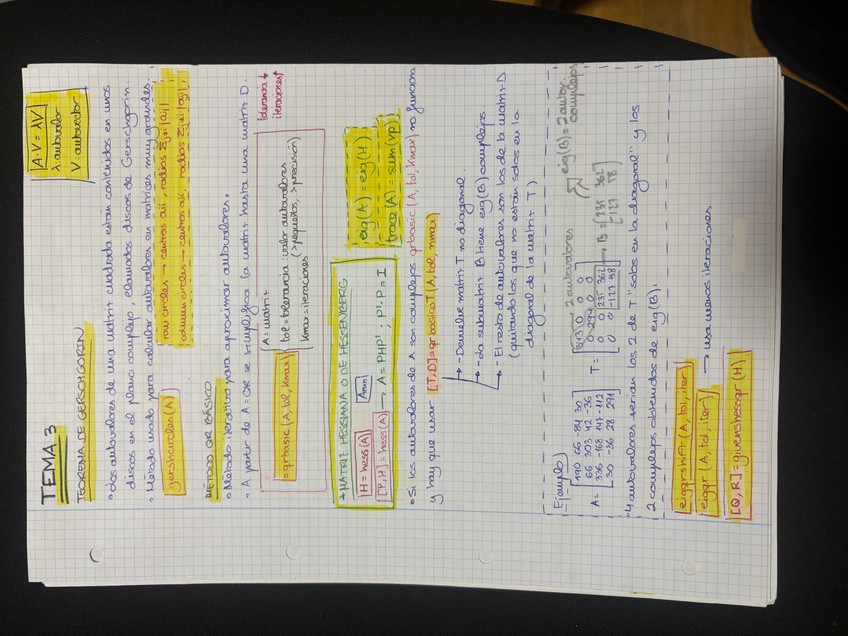 TEMA 3
A·V = λV
λ: autovalor
V: autovector
TEOREMA DE GERSCHGORIN
• Los autovalores de una matriz cuadrada están contenidos en unos
discos en el plano complejo, llamados discos de Gerschgorin.
• Método usado para calcular autovalores en matrices muy grandes.
gershcircles(A)
row circles → centros aii, radios Σj≠i |aij|
column circles → centros aii, radios
MÉTODO QR BÁSICO
• Método iterativo para aproximar autovalores.
• A partir de A=QR se simplifica la matriz hasta una matriz D.
=qrbasic (A, tol, kmax)
A = matriz
tol = tolerancia: valor autovalores
(>pequeños, >precisión)
kmax = iteraciones
tolerancia ↓
iteraciones↑
* MATRIZ HESSIANA O DE HESSENBERG
H = hess(A)
[P,H] = hess(A) → A = PHP' ; P'·P = I
eig(A) = eig(H)
trace(A) = sum(vp)
• Si los autovalores de A son complejos qrbasic(A, tol, kmax) no funciona
y hay que usar [T,D]=qrbasicoT(A, tol, nmax)
→ Devuelve matriz T no diagonal.
→ La submatriz B tiene eig(B) complejos
→ El resto de autovalores son los de la matriz D
(quitando los que no están solos en la
diagonal de la matriz T)
Ejemplo)
190 66 -84 30
66 303 42 -36
336 -168 147 -112
30 -36 28 291
A =
T =
343 0 0 0
0 294 0 0
0 0 235 362
0 0 -127 58
2 autovalores
→ B = [235 362
-127 58]
eig(B) = 2 autov.
complejos
"4 autovalores serían los 2 de T "solos en la diagonal" y los
2 complejos obtenidos de eig(B).
eigqrshift(A, tol, iter)
eigqr (A, tol, iter) → usa menos iteraciones
[Q,R] = givenshessqr(H)